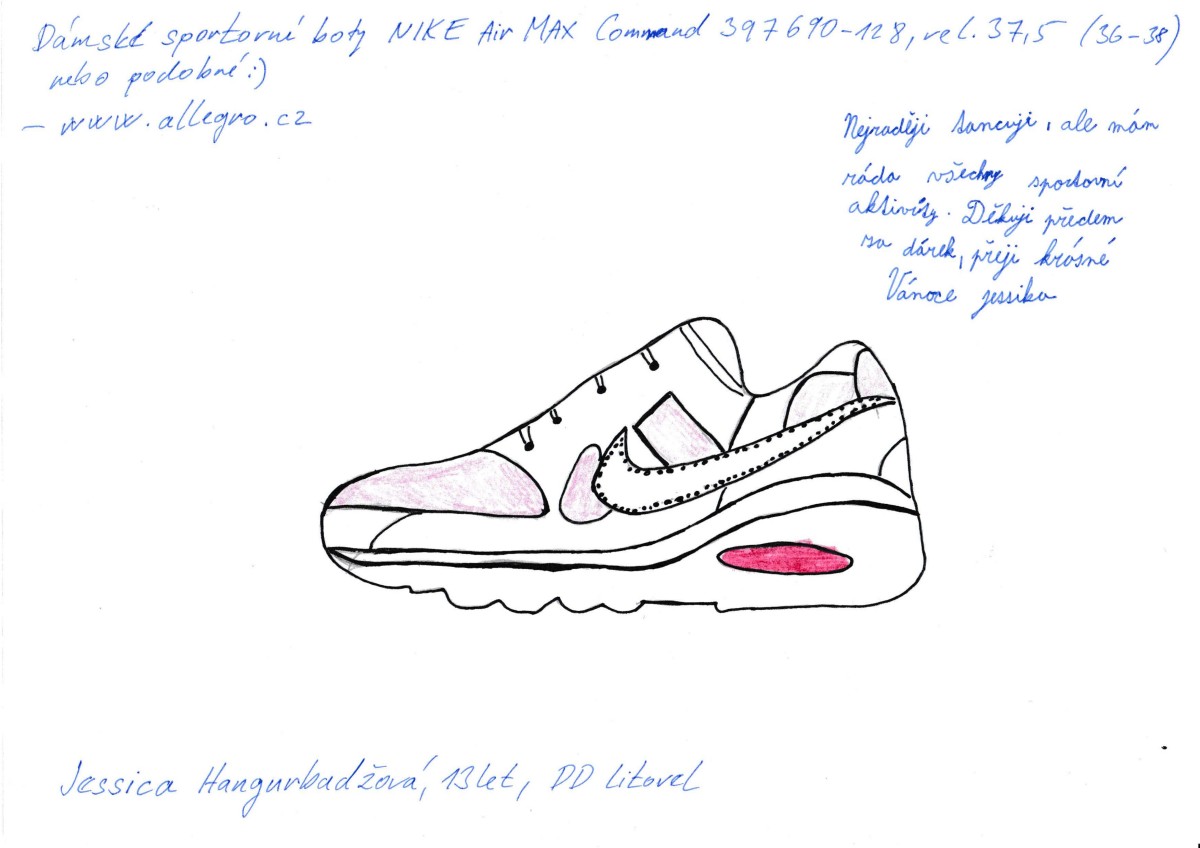 Dámské sportovní boty NIKE Air MAX Command 397690-128, vel. 37,5 (36-38)
nebo podobné :)
- www.allegro.cz
Nejraději tancuji, ale mám
ráda všechny sportovní
aktivity. Děkuji předem
za dárek, přeji krásné
Vánoce jessika
Jessica Hangurbadžová, 13 let, DD Litovel